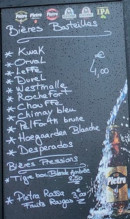 Pietra
IPA
Bières Bouteilles
* Kwak
* Orval
* Leffe
* Duvel
* Westmalle
* Rochefort
* Chouffe
* Chimay bleu
* Pelforth brune
* Hoegaarden Blanche
* Desperados
€
4,00
Bières Pressions
* Pietra Rossa
Fruits Rouges